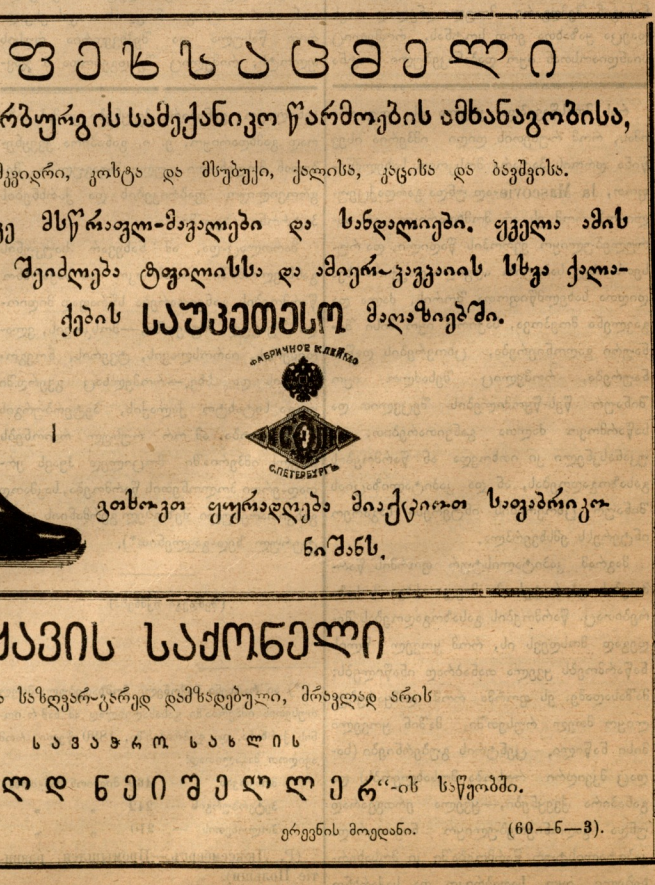 ფეხსაცმელი
რბურგის სამექანიკო წარმოების ამხანაგობისა,
მკვიდრი, კოსტა და მსუბუქი, ქალისა, კაცისა და ბავშვისა.
ვე მსწრაფლ-მავალები და სანდალიები. ყველა ამის
შეიძლება ტფილისსა და ამიერ-კავკაიის სხვა ქალა-
ქების საუკეთესო მაღაზიებში.
ФАБРИЧНОЕ КЛЕЙМО
С.ПЕТЕРБУРГЪ
გთხოვთ ყურადღება მიაქციოთ საფაბრიკო
ნიშანს.
ყავის საქონელი
ა საზღვარ-გარედ დამზადებული, მრავლად არის
სავაჭრო სახლის
ლდ ნეიშელლერ“-ის საწყობში.
ერევნის მოედანი. (60—ნ—3).